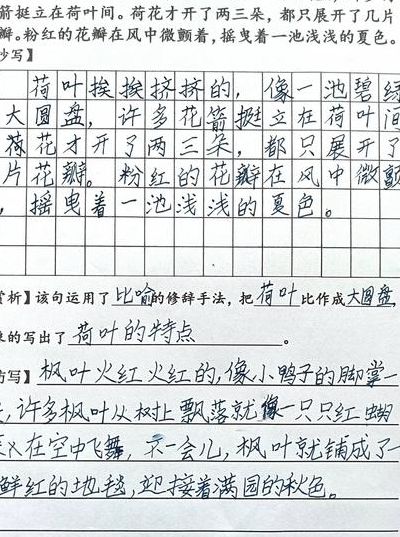 箭挺立在荷叶间。荷花才开了两三朵，都只展开了几片
瓣。粉红的花瓣在风中微颤着，摇曳着一池浅浅的夏色。
抄写】
荷叶挨挨挤挤的，像一池碧绿
大圆盘，许多花箭挺立在荷叶间
荷花才开了两三朵，都只展开了
片花瓣。粉红的花瓣在风中微颤
，摇曳着一池浅浅的夏色。
赏析】该句运用了比喻的修辞手法，把荷叶比作成大圆盘，
的写出了荷叶的特点。
仿写】枫叶火红火红的，像小鸭子的脚掌一
，许多枫叶从树上飘落就像一只只红蝴
在空中飞舞，不一会儿，枫叶就铺成了一
鲜红的地毯，迎接着满园的秋色。